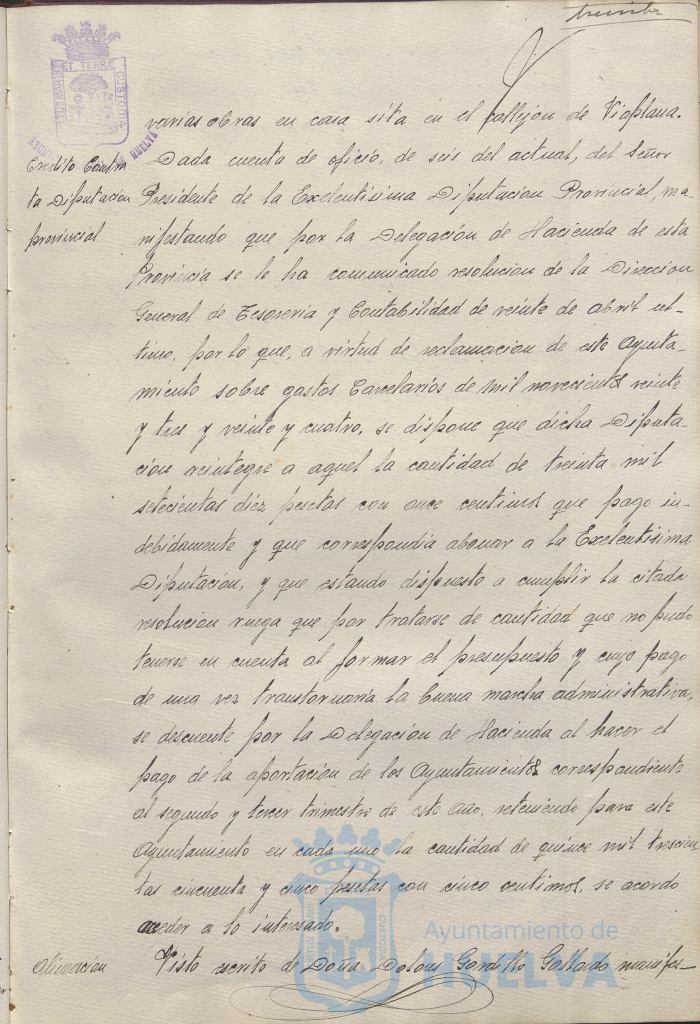 treinta
PORTUS MARIS ET TERRÆ CUSTODIA
HUELVA
varias obras en casa sita en el callejon de Viaplana.
Credito Contra
la Diputacion
provincial
Dada cuenta de oficio, de seis del actual, del Señor
Presidente de la Excelentisima Diputacion Provincial, ma-
nifestando que por la Delegación de Hacienda de esta
Provincia se le ha comunicado resolucion de la Direccion
General de Tesoreria y Contabilidad de veinte de abril ul-
timo, por lo que, a virtud de reclamacion de este Ayunta-
miento sobre gastos Carcelarios de mil novecientos veinte
y tres y veinte y cuatro, se dispone que dicha Diputa-
ción reintegre a aquel la cantidad de treinta mil
setecientas diez pesetas con once centimos que pago in-
debidamente y que correspondia abonar a la Excelentisima
Diputación, y que estando dispuesto a cumplir la citada
resolucion ruega que por tratarse de cantidad que no pudo
tenerse en cuenta al formar el presupuesto y cuyo pago
de una vez transtornaria la buena marcha administrativa,
se descuente por la Delegación de Hacienda al hacer el
pago de la aportación de los Ayuntamientos correspondiente
al segundo y tercer trimestre de este año, reteniendo para este
Ayuntamiento en cada uno la cantidad de quince mil trescien
tas cincuenta y cinco pesetas con cinco centimos, se acordo
acceder a lo interesado.
Alineación
Visto escrito de Doña Dolores Gordillo Gallardo manifes-
Ayuntamiento de
HUELVA